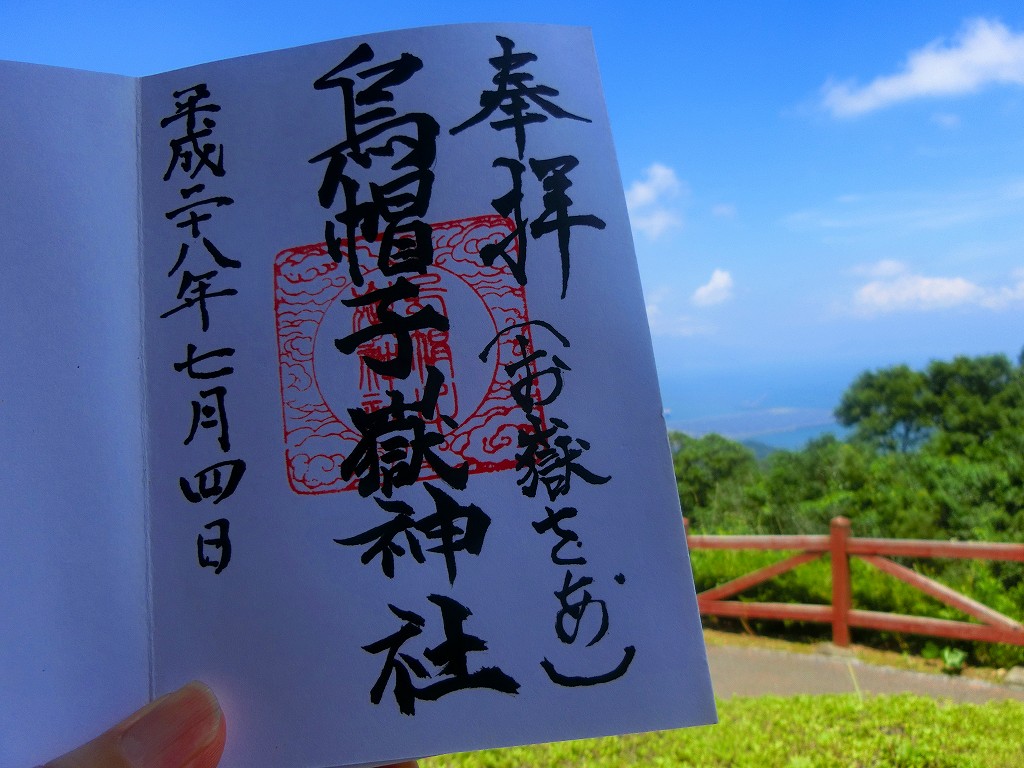 奉拝(お嶽さあ)
烏帽子嶽神社
平成二十八年七月四日